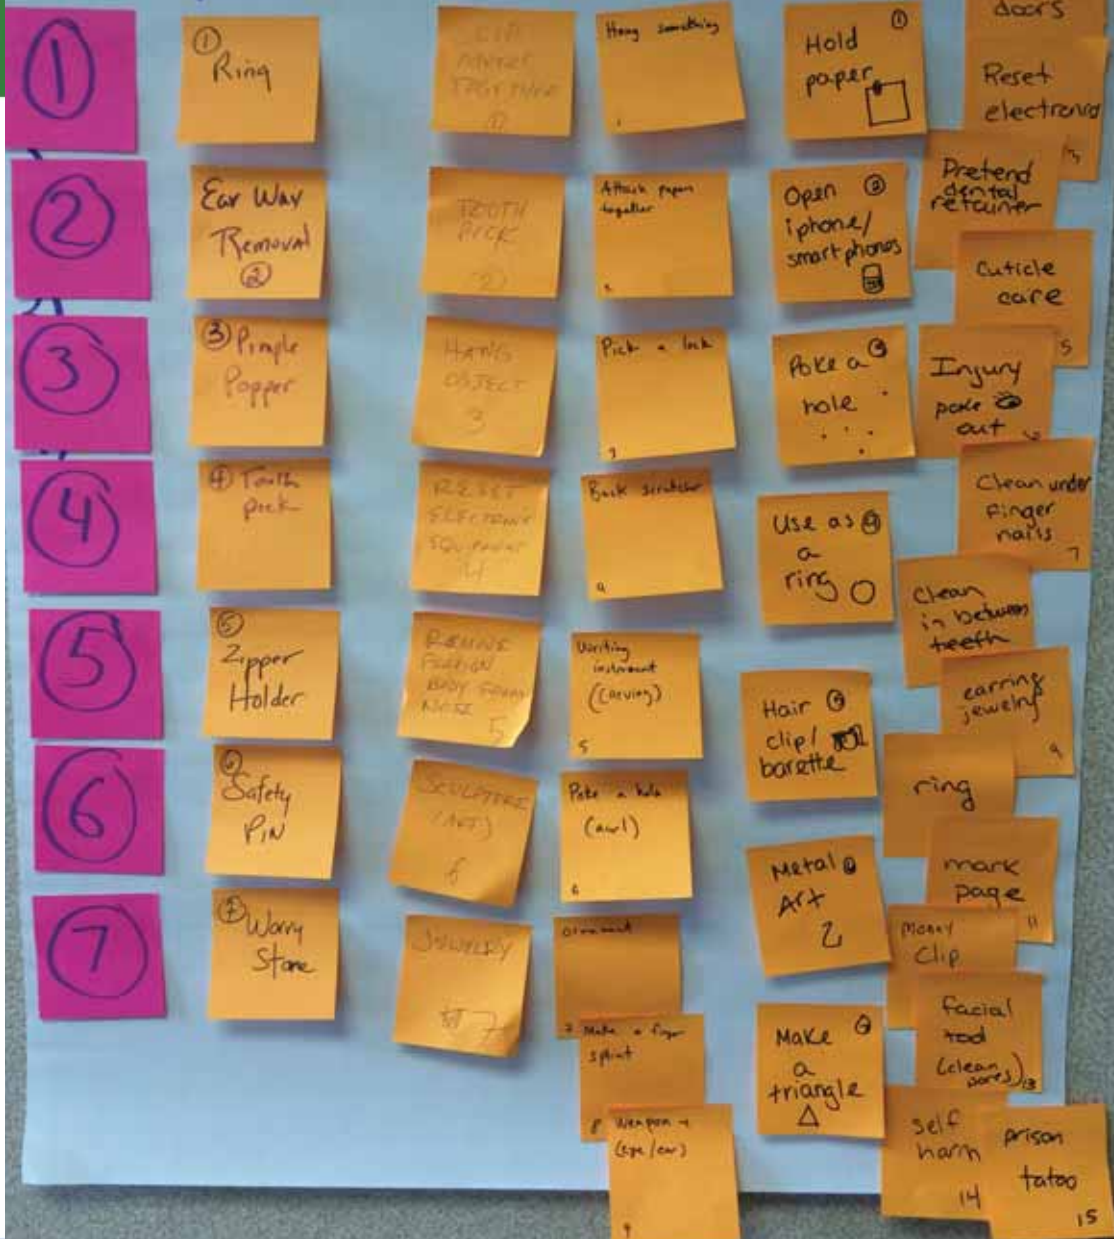 1
2
3
4
5
6
7
① Ring
Ear Wax
Removal
②
③ Pimple
Popper
④ Tooth
pick
⑤
Zipper
Holder
⑥
Safety
PIN
⑦ Worry
Stone
CLIP
PAPERS
TOGETHER
①
TOOTH
PICK
2
HANG
OBJECT
3
RESET
ELECTRONIC
EQUIPMENT
4
REMOVE
FOREIGN
BODY FROM
NOSE
5
SCULPTURE
(ART)
6
JEWELRY
7
Hang something
1
Attach papers
together
Pick a lock
3
Back scratcher
4
Writing
instrument
(carving)
5
Poke a hole
(awl)
6
Ornament
7
Make a finger
splint
8
Weapon
(eye/ear)
9
Hold ①
paper
Open ②
iphone/
smartphones
Poke a ③
hole
Use as ④
a
ring
Hair
clip/
barette
Metal
Art
Make
a
triangle
doors
Reset
electronics
Pretend
dental
retainer
Cuticle
care
5
Injury
poke
out
6
Clean under
finger
nails
7
Clean
in between
teeth
earring
jewelry
9
ring
mark
page
11
Money
Clip
facial
tool
(clean
pores) 13
self
harm
14
prison
tatoo
15